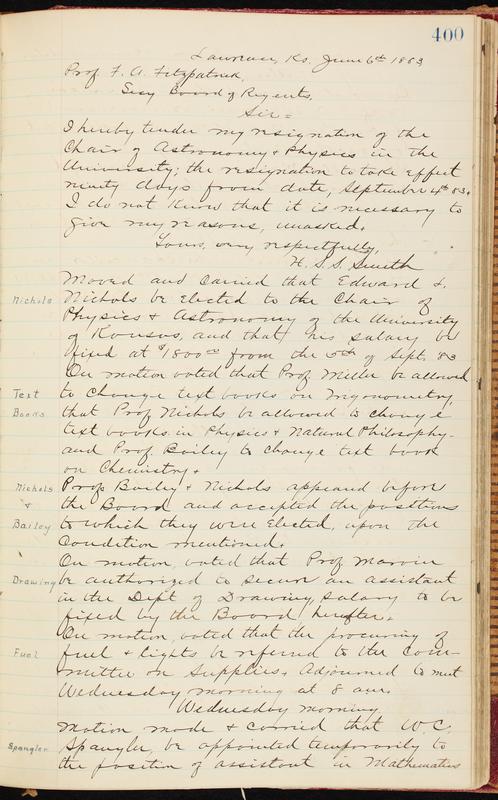 400
Lawrence, Ks. June 6th 1883
Prof. F. A. Fitzpatrick,
Secy Board of Regents,
Sir =
I hereby tender my resignation of the
Chair of Astronomy & Physics in the
University; the resignation to take effect
ninety days from date, September 4th 83.
I do not know that it is necessary to
give my reasons, unasked.
Yours, very respectfully,
H. S. S. Smith
Moved and carried that Edward L.
Nichols Nichols be elected to the Chair of
Physics & Astronomy of the University
of Kansas, and that his salary be
fixed at $1800 00 from the 5th of Sept. 83
On motion voted that Prof. Miller be allowed
Text to change text books on Trigonometry
Books that Prof Nichols be allowed to change
text books in Physics & Natural Philosophy-
and Prof Bailey to change text book
on Chemistry.
Nichols Profs Bailey & Nichols appeared before
& the Board and accepted the positions
Bailey to which they were elected, upon the
condition mentioned.
On motion, voted that Prof Marvin
Drawing be authorized to secure an assistant
in the Dept of Drawing, salary to be
fixed by the Board hereafter.
On motion, voted that the procuring of
Fuel fuel & lights be referred to the Com-
mittee on Supplies. Adjourned to meet
Wednesday morning at 8 am.
Wednesday morning
Motion made & carried that W. C.
Spangler Spangler, be appointed temporarily to
the position of assistant in Mathematics